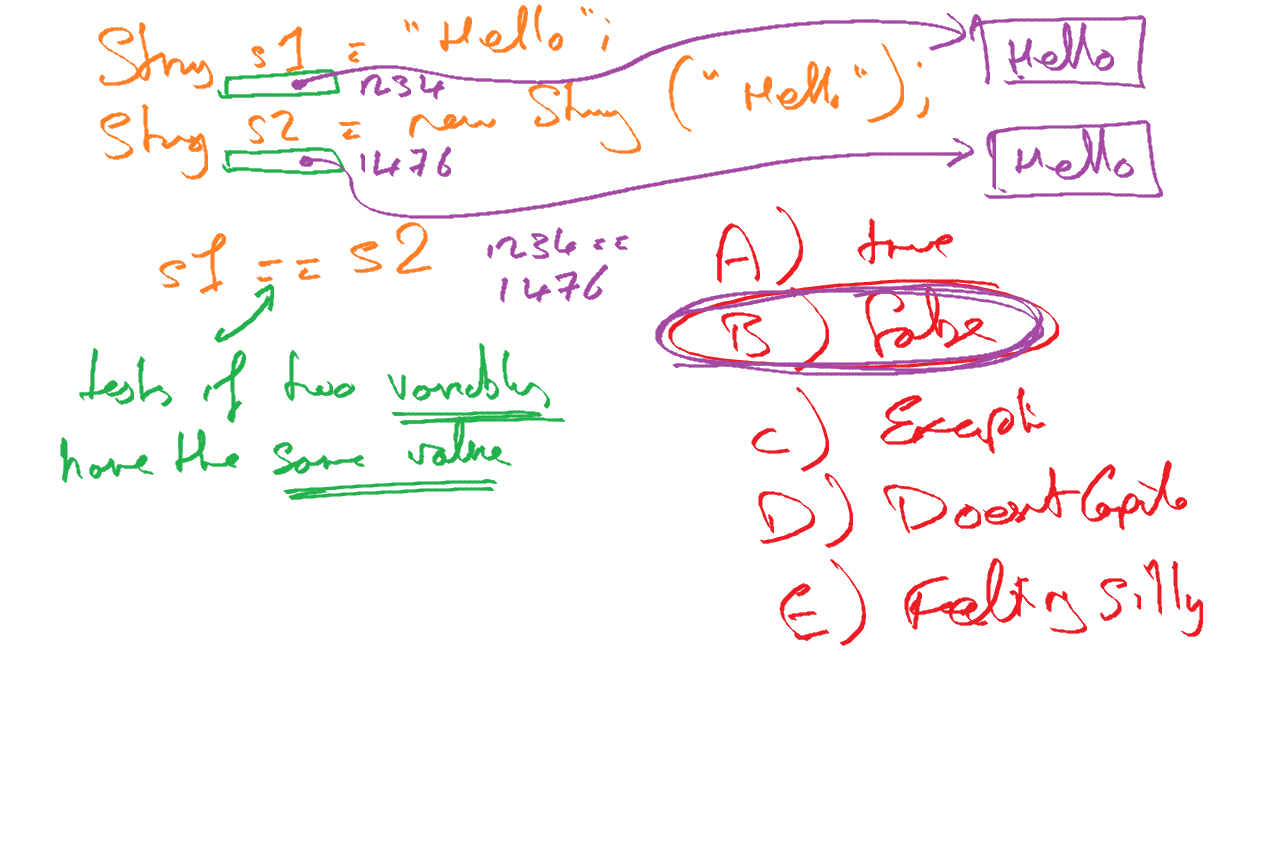 String s1 = "Hello";
1234
Hello
String s2 = new String ("Hello");
1476
Hello
s1 == s2
1234 ==
1476
tests if two variables
have the same value
A) true
B) false
C) Excepti
D) Doesnt Compile
E) Feeling silly